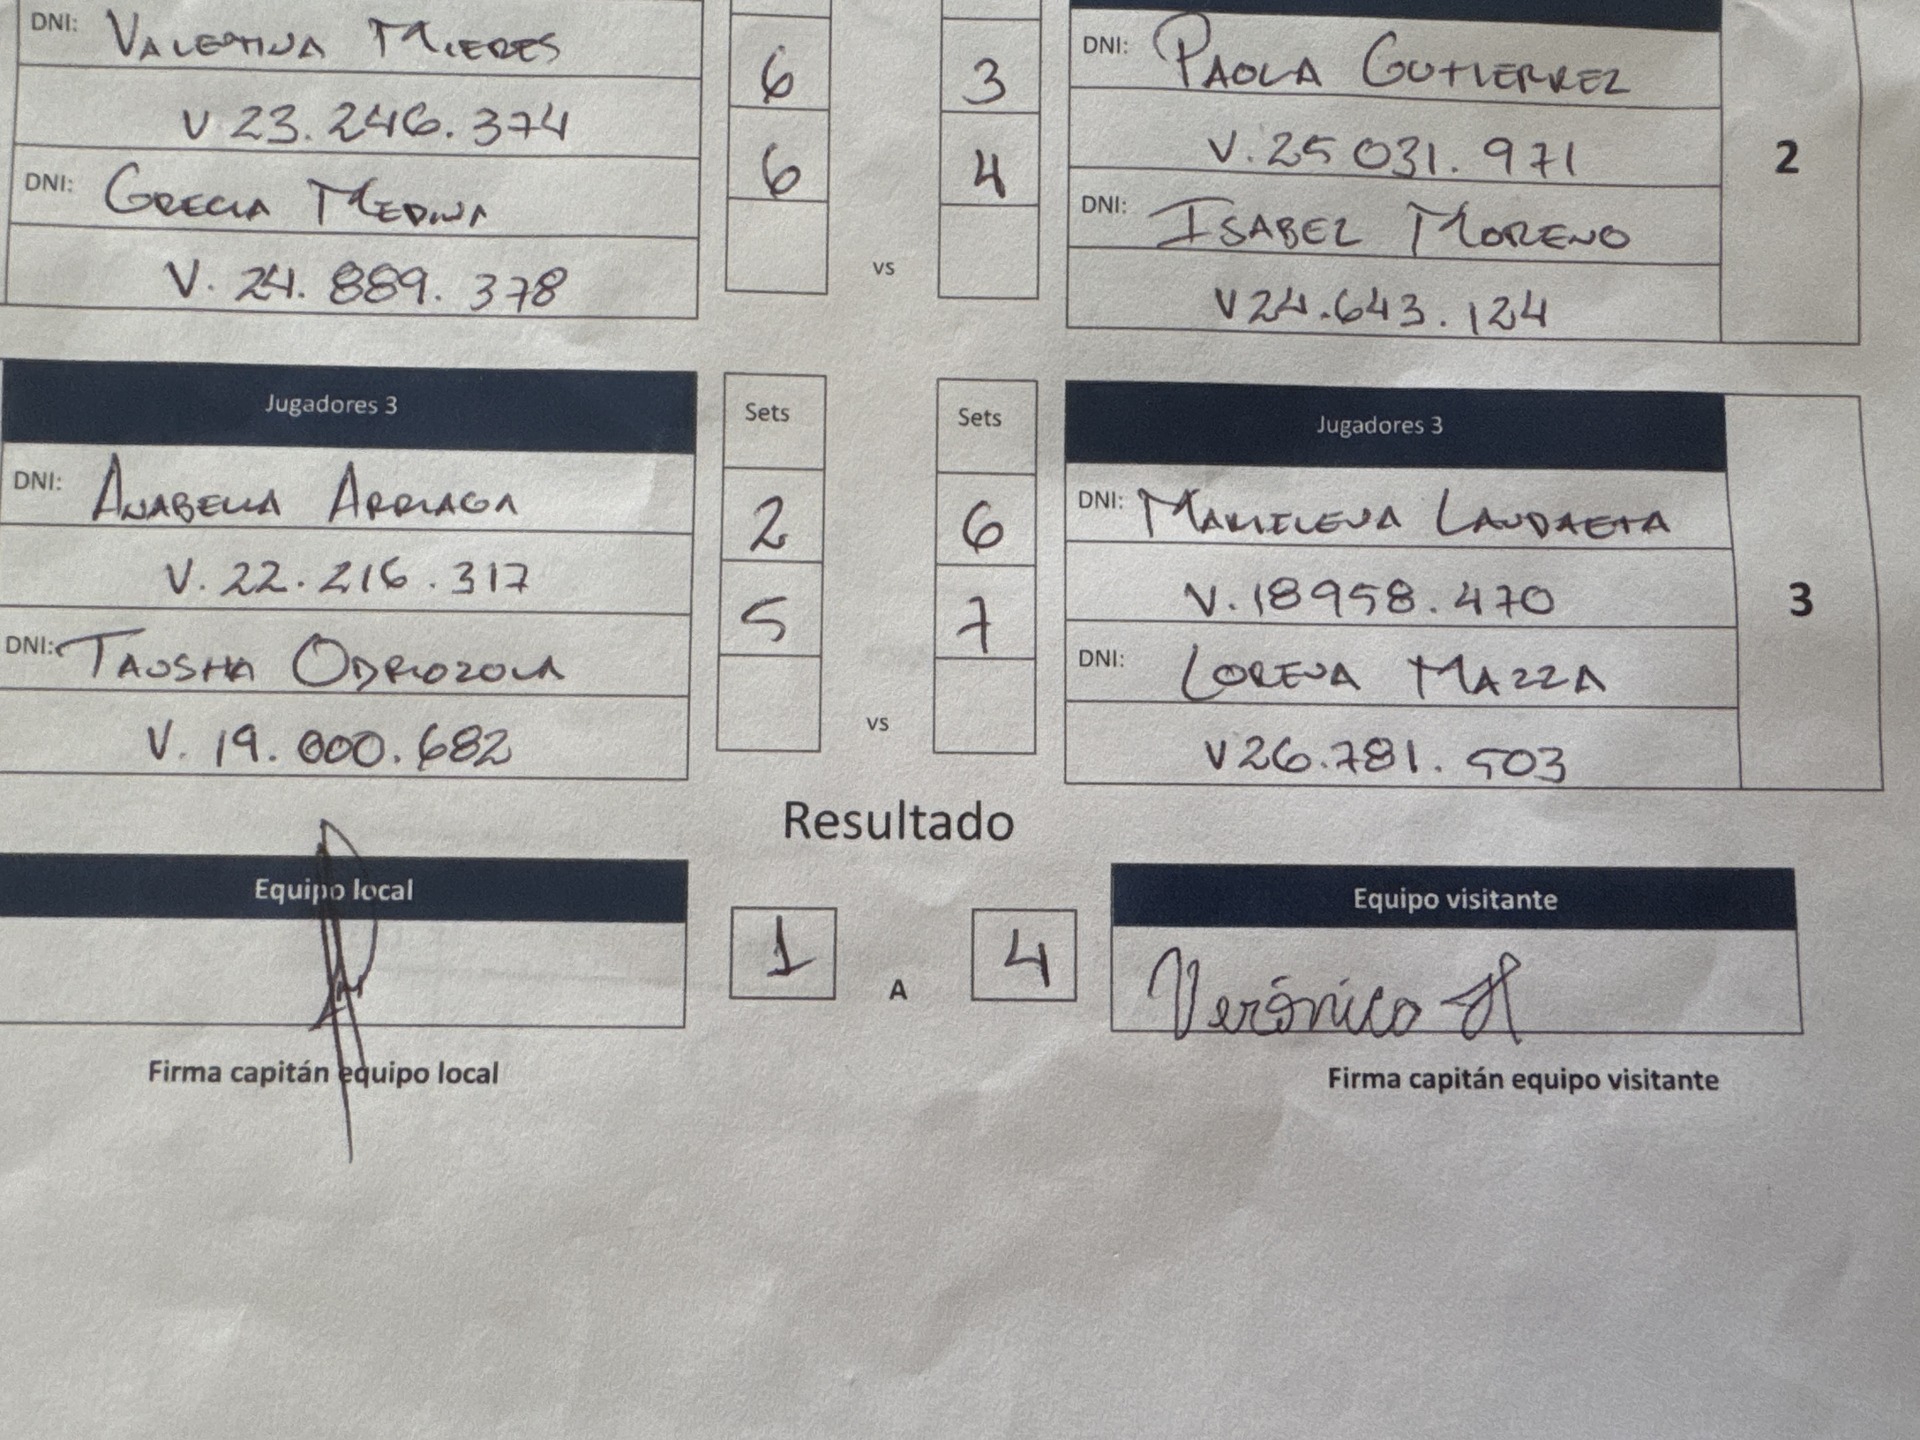 DNI: VALENTINA MIERES
6
3
DNI: PAOLA GUTIERREZ
V 23.246.374
V.25 031.971
2
DNI: GRECIA MEDINA
6
4
DNI: ISABEL MORENO
V. 24.889.378
vs
V24.643.124
Jugadores 3
Sets
Sets
Jugadores 3
DNI: ANABELLA ARRIAGA
2
6
DNI: MARIELENA LANDAETA
V. 22.216.317
V.18958.470
3
DNI: TAUSHA ODRIOZOLA
5
7
DNI: LORENA MAZZA
V. 19.000.682
vs
V26.781.503
Resultado
Equipo local
Equipo visitante
1
A
4
Verónica H
Firma capitán equipo local
Firma capitán equipo visitante